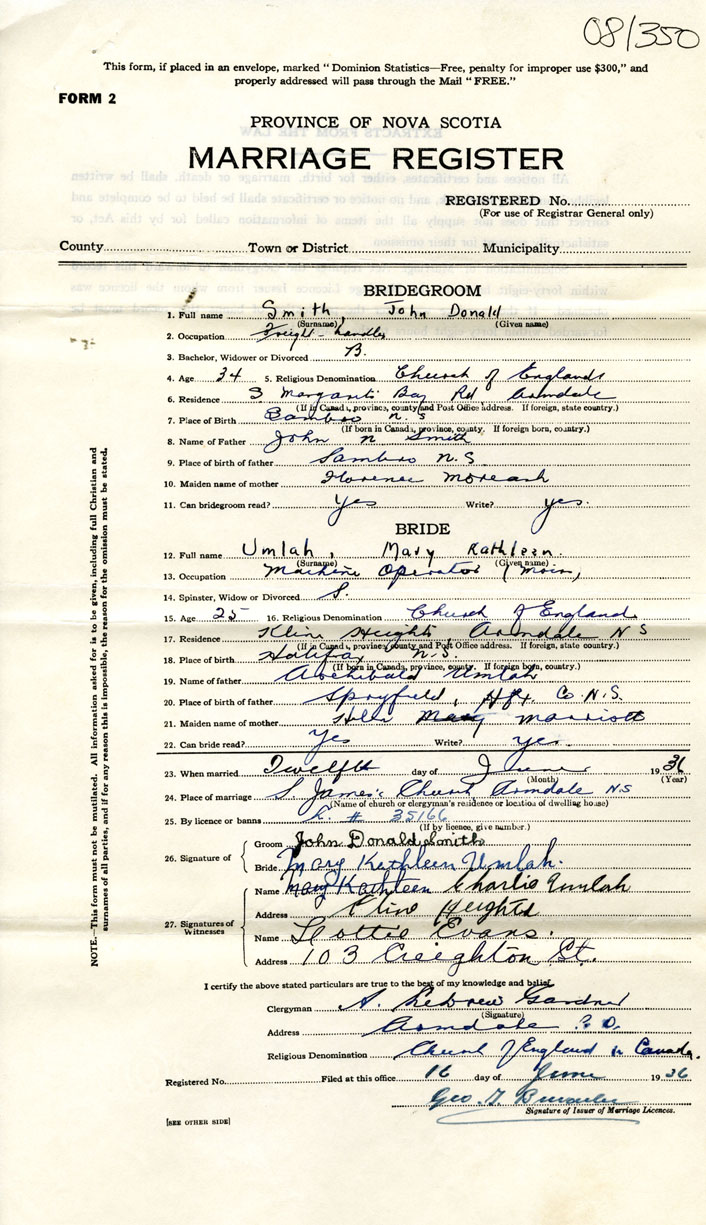 08/350
This form, if placed in an envelope, marked "Dominion Statistics—Free, penalty for improper use $300," and
properly addressed will pass through the Mail "FREE."
FORM 2
PROVINCE OF NOVA SCOTIA
MARRIAGE REGISTER
REGISTERED No.
(For use of Registrar General only)
County Town or District Municipality
BRIDEGROOM
1. Full name Smith, John Donald
(Surname) (Given name)
2. Occupation Freight-handler
3. Bachelor, Widower or Divorced B.
4. Age 34 5. Religious Denomination Church of England
6. Residence S Margarets Bay Rd Armdale
(If in Canada, province, county and Post Office address. If foreign, state country.)
7. Place of Birth Sambro N.S
(If born in Canada, province, county. If foreign born, country.)
8. Name of Father John N Smith
9. Place of birth of father Sambro N.S
10. Maiden name of mother Florence
11. Can bridegroom read? Yes Write? yes.
BRIDE
12. Full name Umlah, Mary Kathleen.
(Surname) (Given name)
13. Occupation Machine Operator (Moirs)
14. Spinster, Widow or Divorced S.
15. Age 25 16. Religious Denomination Church of England
17. Residence Kline Heights, Armdale N S
(If in Canada, province, county and Post Office address. If foreign, state country.)
18. Place of birth Halifax N.S.
(If born in Canada, province, county. If foreign born, country.)
19. Name of father Archibald Umlah
20. Place of birth of father Spryfield, Hfx Co. N.S.
21. Maiden name of mother Marriott
22. Can bride read? Yes Write? yes.
23. When married Twelfth day of June 1936
(Month) (Year)
24. Place of marriage S. James's Church Armdale N.S
(Name of church or clergyman's residence or location of dwelling house)
25. By licence or banns L. # 35166
(If by licence, give number.)
26. Signature of
Groom John Donald Smith
Bride Mary Kathleen Umlah.
27. Signatures of Witnesses
Name Mary Kathleen Charlie Umlah
Address Kline Heights
Name Lottie Evans.
Address 103 Creighton St.
I certify the above stated particulars are true to the best of my knowledge and belief.
Clergyman A. Gardner
(Signature)
Address Armdale P.O.
Religious Denomination Church of England in Canada.
Registered No. Filed at this office 16 day of June 1936
Geo. T.
Signature of Issuer of Marriage Licences.
[SEE OTHER SIDE]
NOTE.—This form must not be mutilated. All information asked for is to be given, including full Christian and
surnames of all parties, and if for any reason this is impossible, the reason for the omission must be stated.